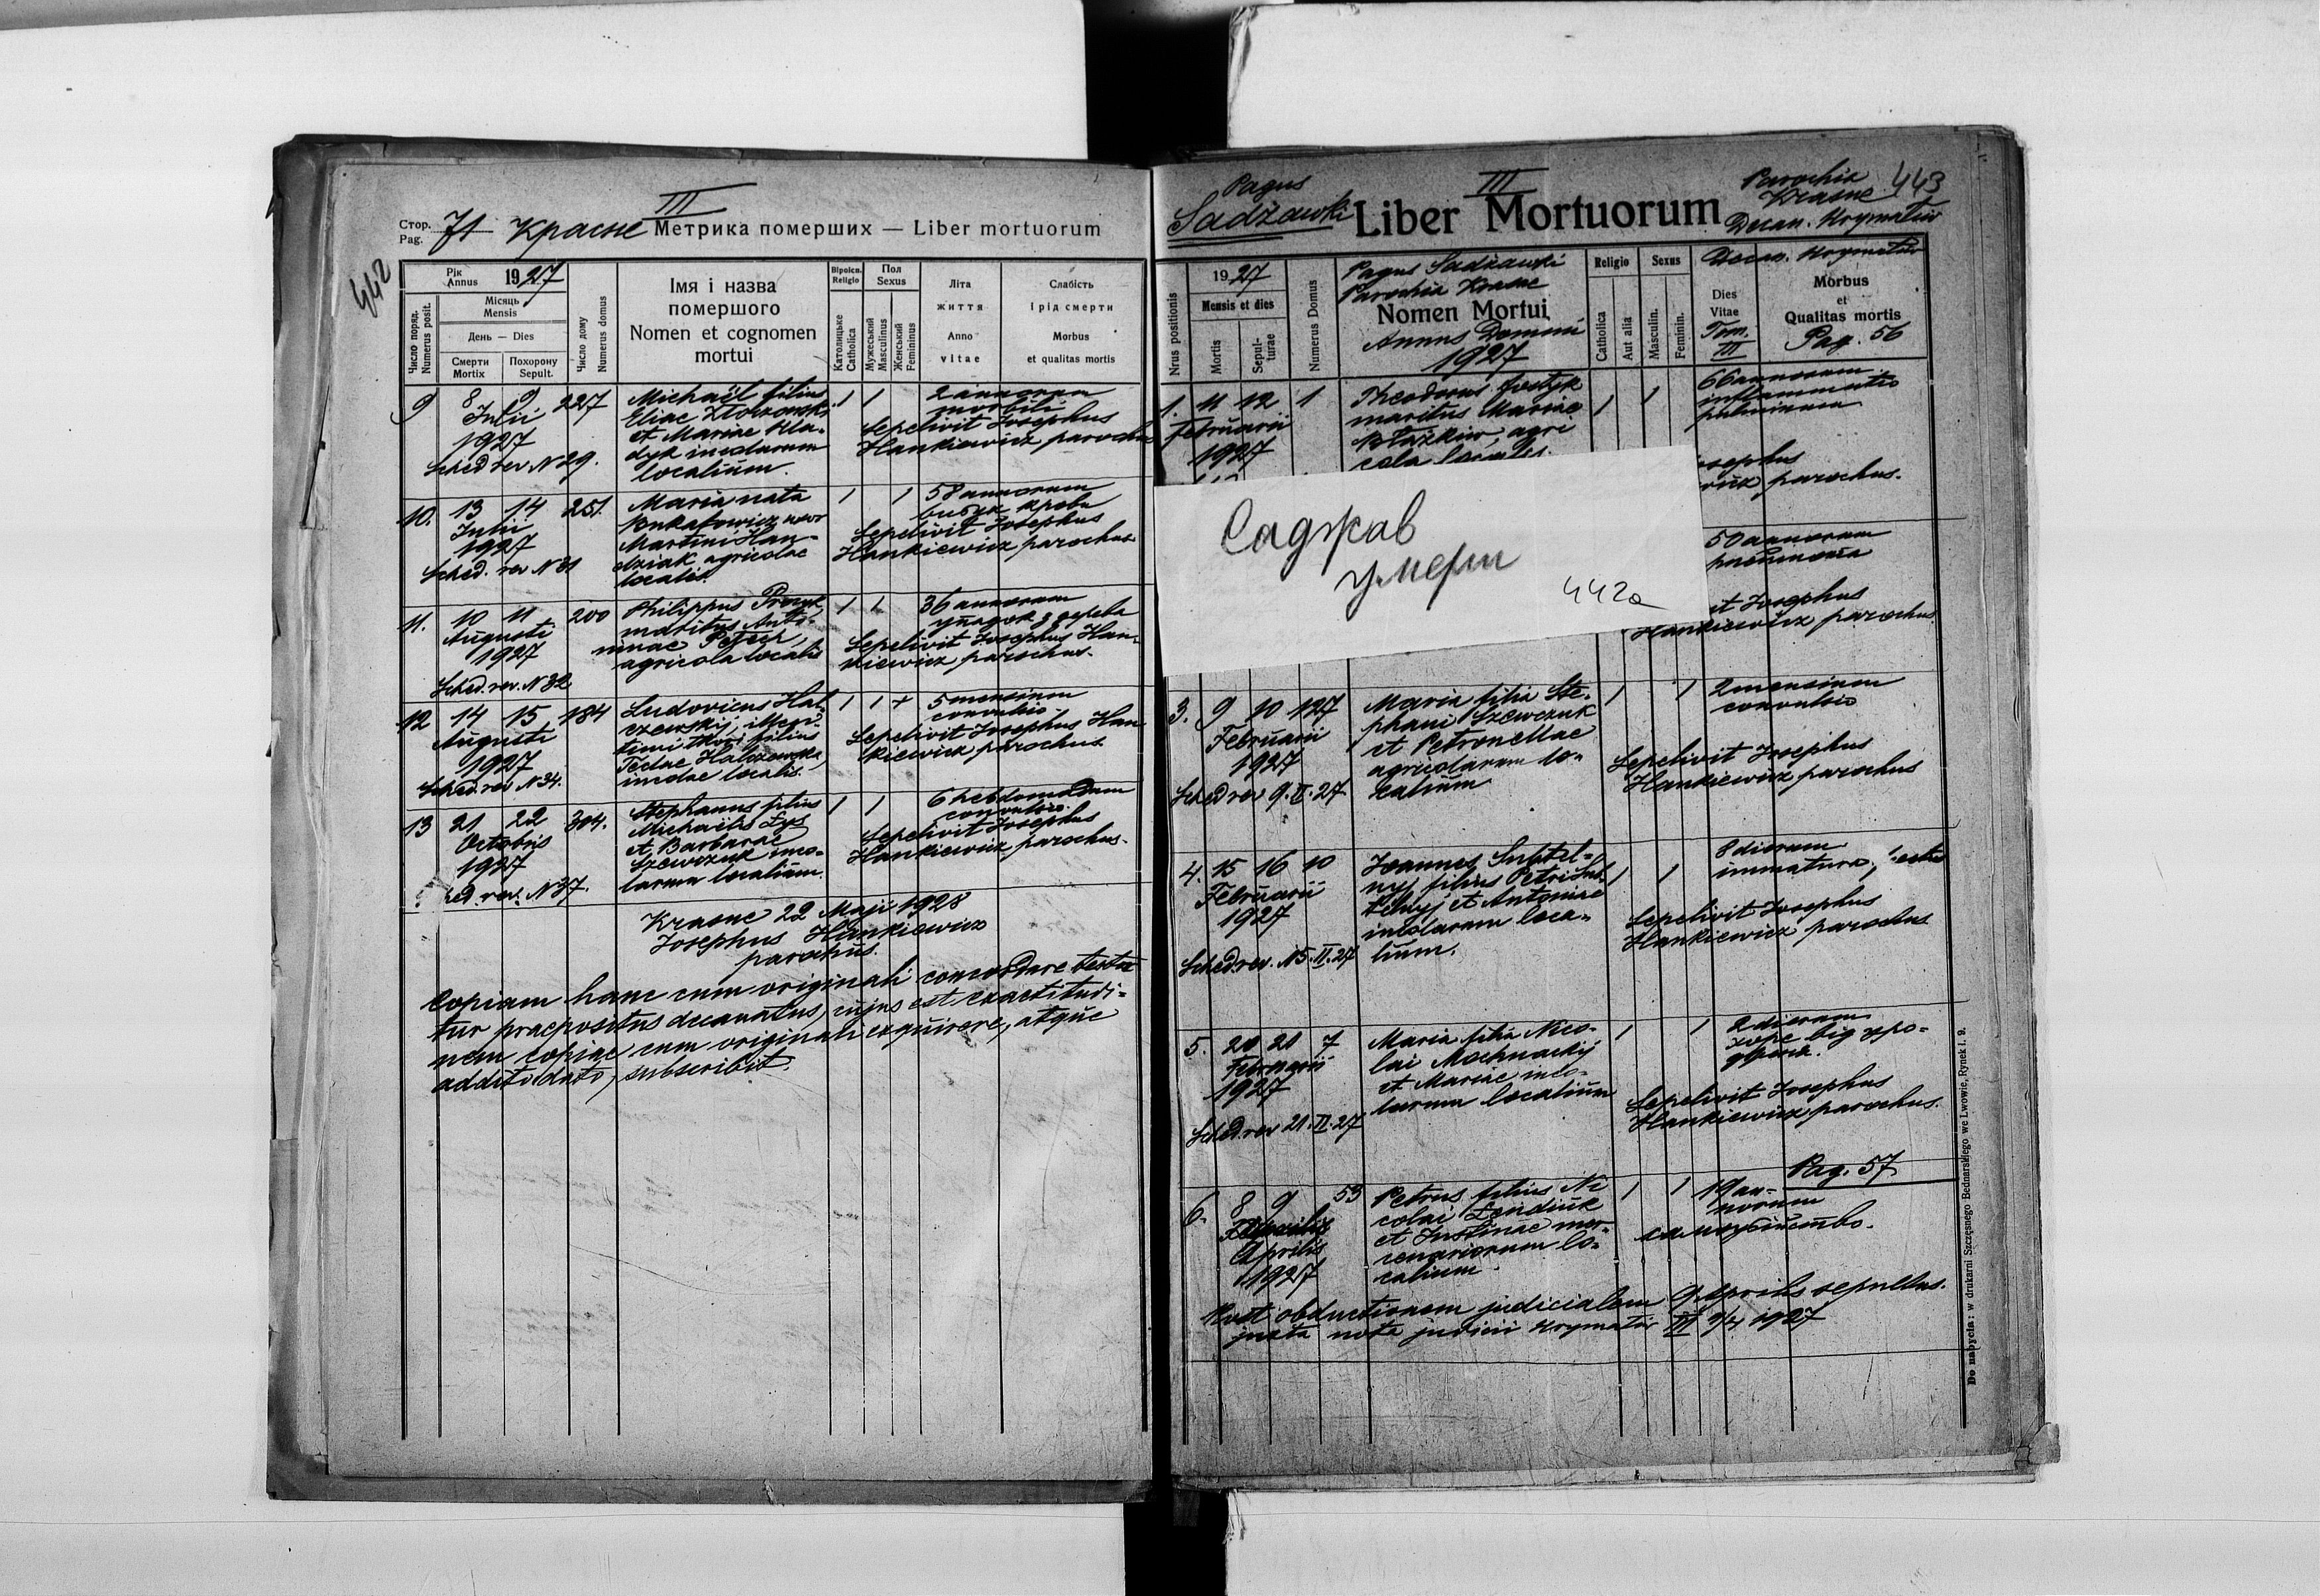 III
Стор. Pag. 71 Красне Метрика померших — Liber mortuorum
442
Рік Annus 1927
Число поряд. Numerus posit.
Місяць Mensis
День — Dies
Смерти Mortix
Похорону Sepult.
Число дому Numerus domus
Імя і назва
помершого
Nomen et cognomen
mortui
Віроісп. Religio
Католицьке Catholica
Пол Sexus
Мужеський Masculinus
Женський Femininus
Літа
життя
Anno
vitae
Слабість
і рід смерти
Morbus
et qualitas mortis
9 8 9 227 Michaël filius 1 1 2 annorum
Julii Eliae Złoczowski morbili
1927 et Mariae Hla- Sepelivit Josephus
dyk incolarum Hankiewicz parochus
Sched rev N 29. localium.
10. 13 14 251. Maria nata 1 1 58 annorum
Julii Bukatowicz uxor вибух крови
1927 Martini Han- Sepelivit Josephus
dziak agricolae Hankiewicz parochus
Sched. rev N 31 localis
11. 10 11 200 Philippus 1 1 36 annorum
Augusti maritus Anto- упадок з дерева
1927 ninae Petech, Sepelivit Josephus Han-
agricola localis kiewicz parochus.
Sched. rev. N 32
12 14 15 184 Ludovicus Hal- 1 1 + 5 mensium
Augusti czewskij, convulsio.
1927 filius Sepelivit Josephus Han
Teclae Halczewska, kiewicz parochus
Sched. rev N 34. incolae localis.
13 21 22 304. Stephanus filius 1 1 6 hebdomadum
Octobris Michaëlis Łys convulsio.
1927 et Barbarae Sepelivit Josephus
Szewczuk inco- Hankiewicz parochus.
Sched. rev. N 37. larum localium.
Krasne 22 Maji 1928
Josephus Hankiewicz
parochus.
Copiam hanc cum originali concordare testa
tur praepositus decanatus, cujus est exactitudi-
nem copiae cum originali exquirere, atque
addito dato, subscribit.
Pagus
Sadżawki
III
Liber Mortuorum
Parochia
Krasne
443
Decan. Hrymałiw
Nrus positionis
1927
Mensis et dies
Mortis
Sepul- turae
Numerus Domus
Pagus Sadżawki
Parochia Krasne
Nomen Mortui
Annus Domini
1927
Religio
Catholica
Aut alia
Sexus
Masculin.
Feminin.
Decan. Hrymałiw
Dies
Vitae
Tom.
III
Morbus
et
Qualitas mortis
Pag. 56
1. 11 12 1 Theodorus 1 1 66 annorum
Februarii maritus Mariae inflammatio
1927 Błażkiw, agri pulminum
cola localis.
parochus.
Саджав
умерш
442a
50 annorum
pneumonia
Josephus
Hankiewicz parochus
3. 9 10 127 Maria filia Ste- 1 1 2 mensium
Februarii phani Szewczuk convulsio
1927 et Petronellae
agricolarum lo- Sepelivit Josephus
Sched rev 9. II. 27. calium Hankiewicz parochus
4. 15 16 10 Joannes Subtel- 1 1 8 dierum
Februarii nyj filius Petri Sub- immatura,
1927 telnyj et Antoniae Sepelivit Josephus
incolarum loca- Hankiewicz parochus
Sched. rev. 15. II. 27 lium.
5. 20 21 7 Maria filia Nico- 1 1 2 dierum
Februarii lai Mochnackij хоре від
1927 et Mariae inco-
larum localium Sepelivit Josephus
Sched rev 21. II. 27 Hankiewicz parochus.
Pag. 57
6. 8 9 53 Petrus filius Ni 1 1 19 an-
colai Łendiuk norum
Aprilis et Justinae mer- самоубійство.
1927 cenariorum lo-
calium
Post obductionem judicialem 9 Aprilis sepultus.
juxta nota judicii Hrymałiw III 9/4 1927
Do nabycia: w drukarni Szczęsnego Bednarskiego we Lwowie, Rynek l. 9.